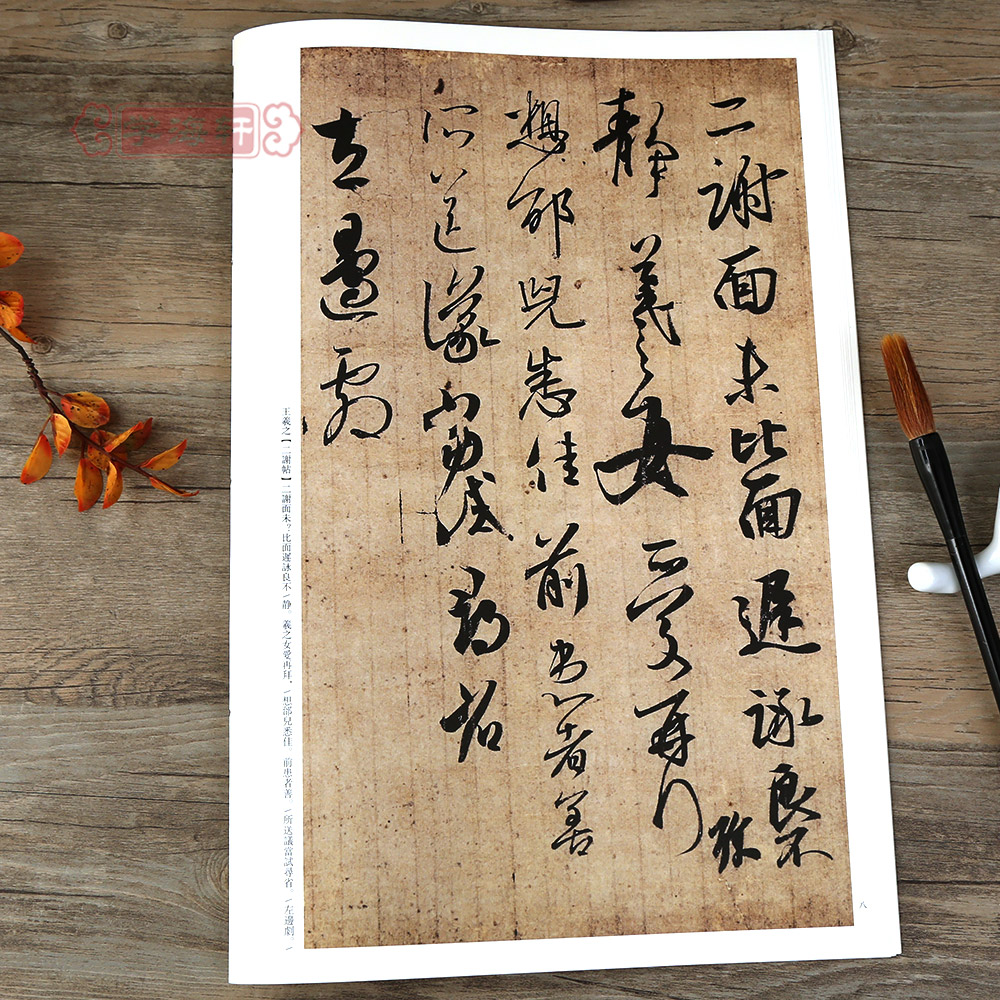 二謝面未比面遲詠良不
静羲之女愛再拜
想邰兒悉佳前患者善
所送議當試尋省
左邊劇
王羲之【二謝帖】二謝面未?比面遲詠良不/静。羲之女愛再拜。/想邰兒悉佳。前患者善。/所送議當試尋省。/左邊劇。/
八